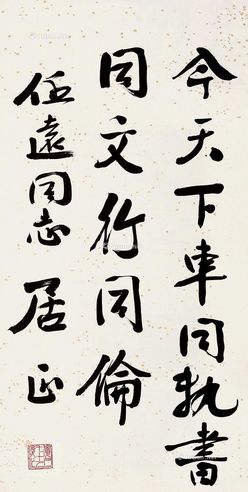 今天下車同軌書
同文行同倫
任遠同志 居正